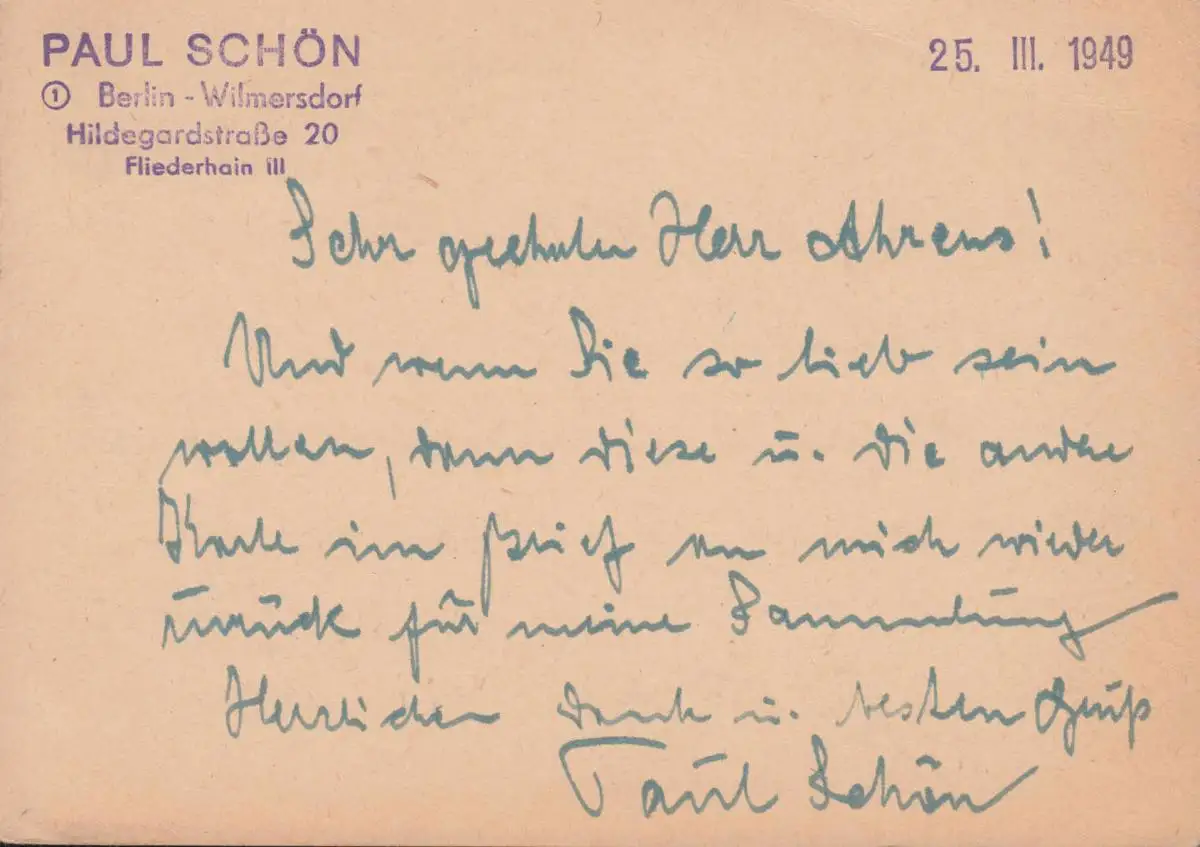 PAUL SCHÖN
25. III. 1949
① Berlin - Wilmersdorf
Hildegardstraße 20
Fliederhain III
Sehr geehrter Herr Ahrens!
Und wenn Sie so lieb sein
wollen, dann diese u. die andre
Karte im Brief an mich wieder
zurück für meine Sammlung
Herzlichen Dank u. besten Gruß
Paul Schön